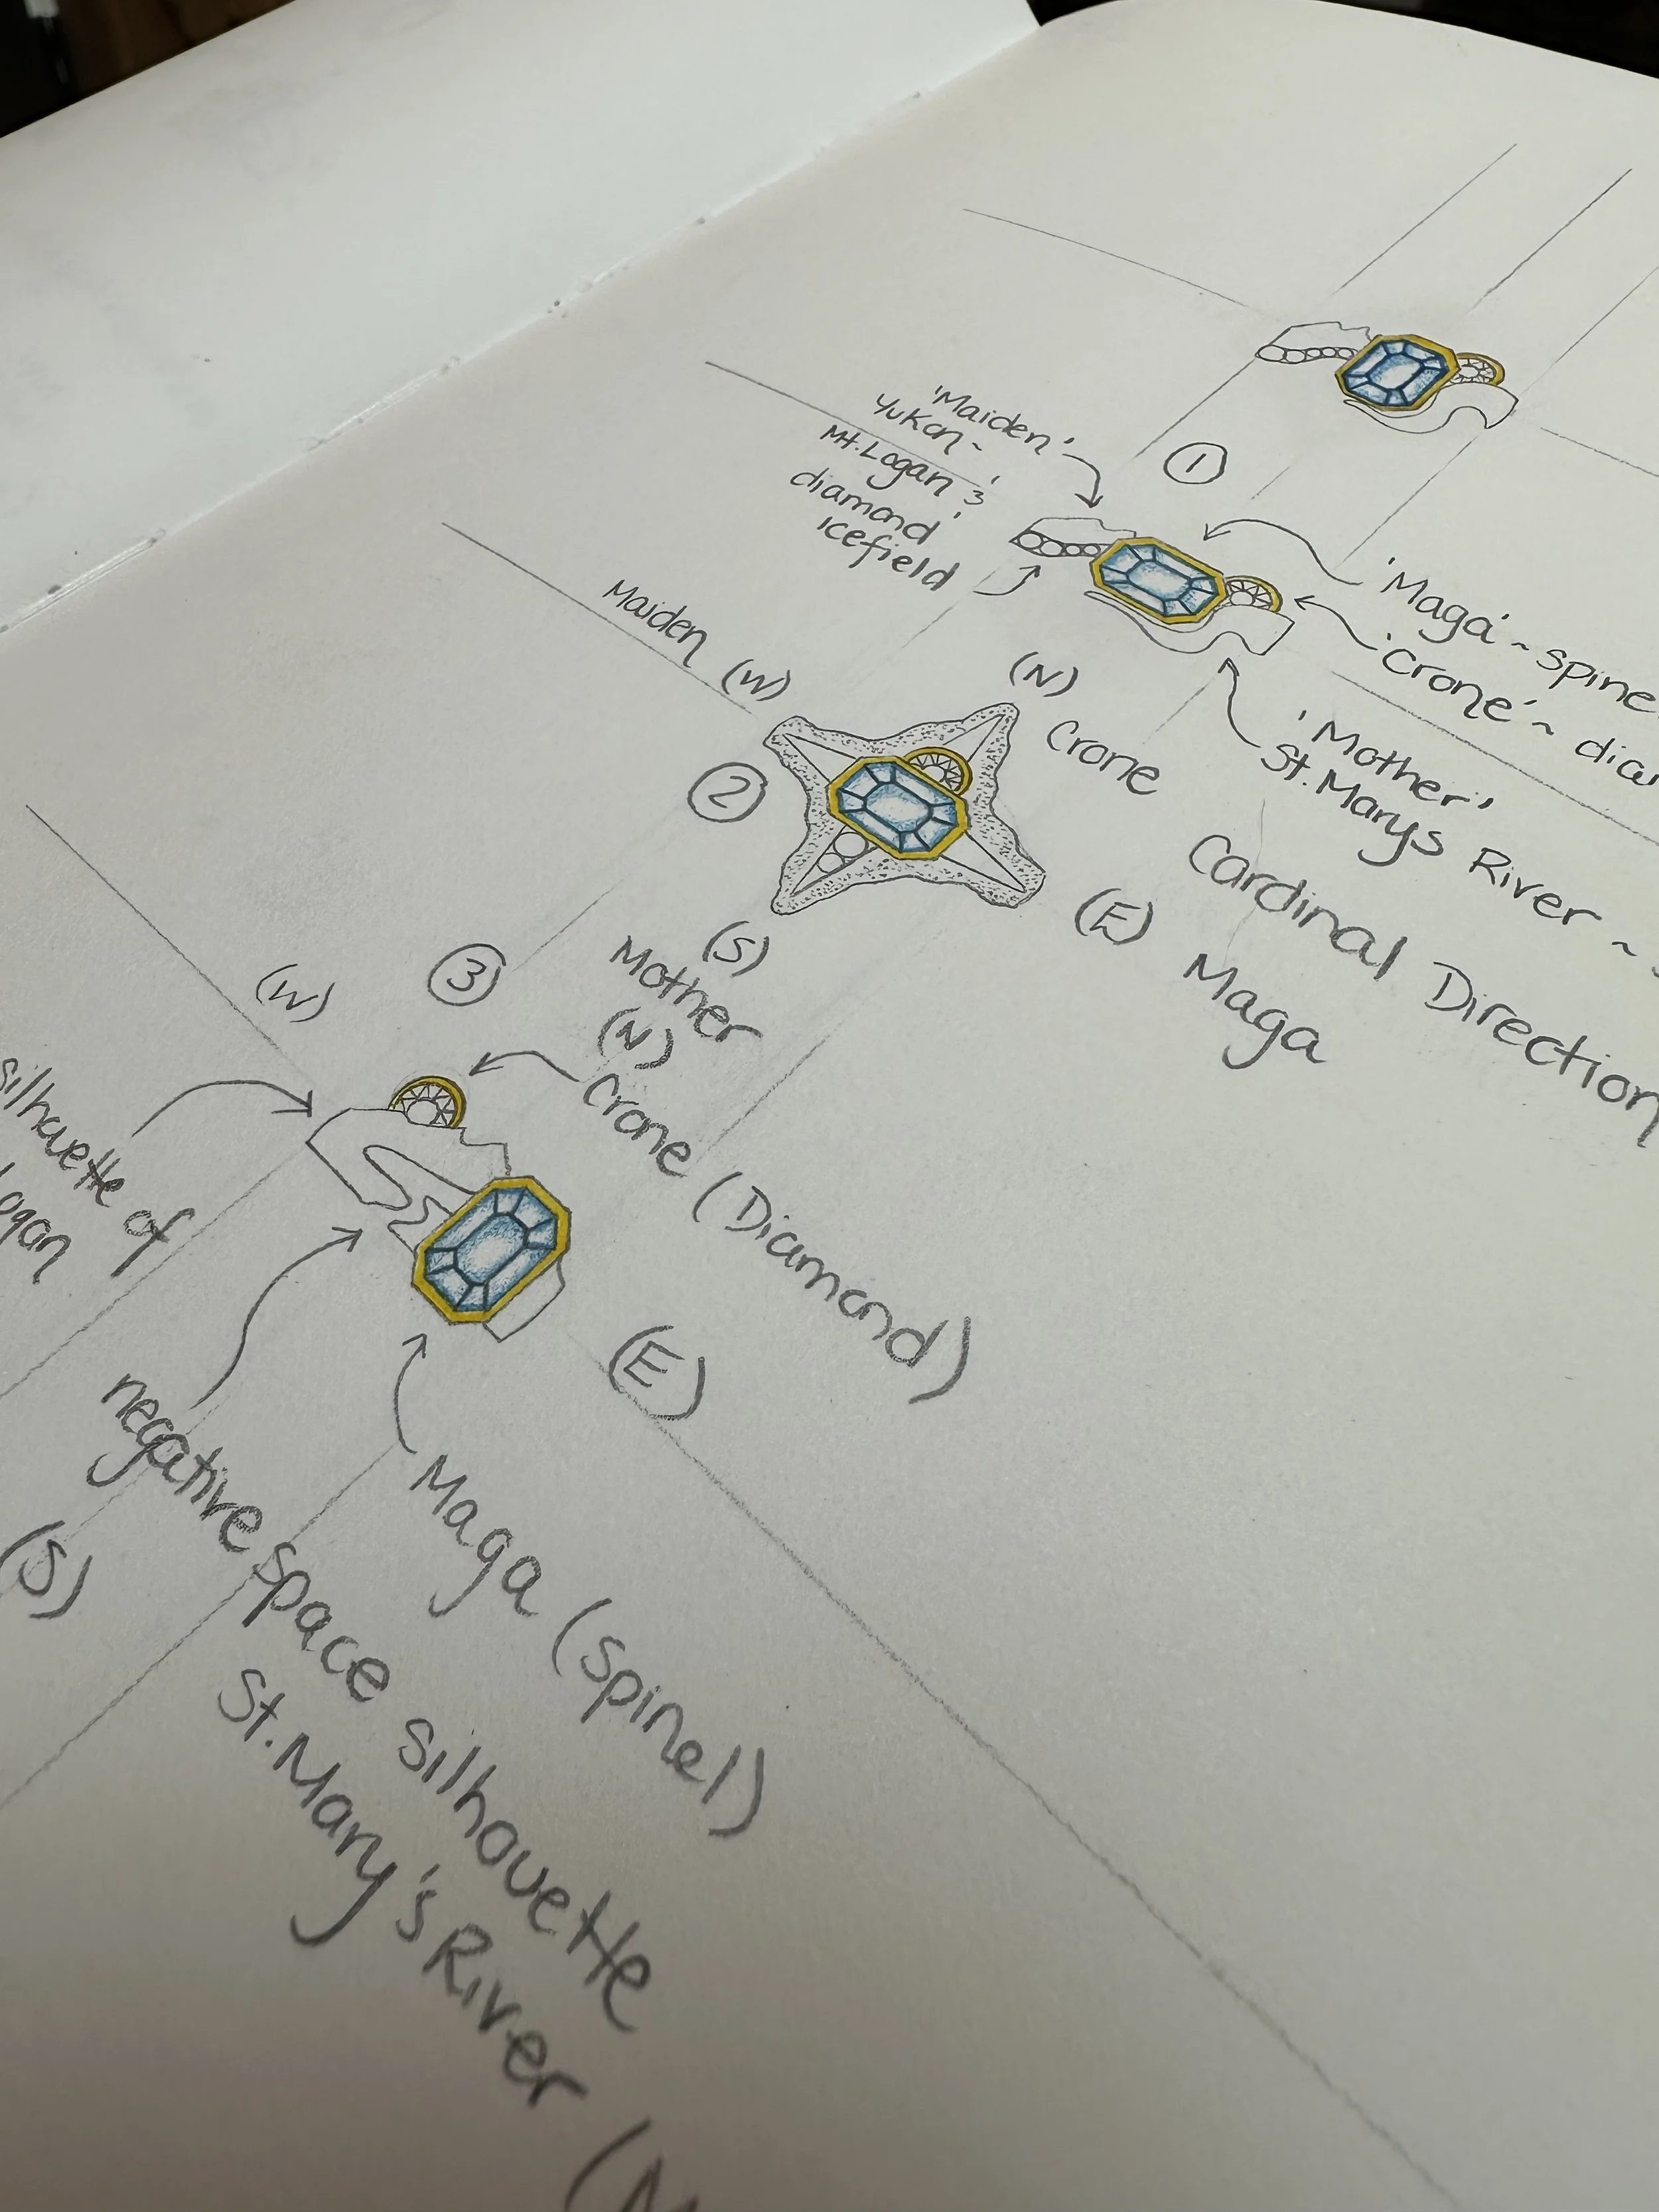 'Maiden'
Yukon ~
Mt. Logan &
'diamond'
icefield
①
'Maga' ~ spine
'Crone' ~ dia
'Mother'
St. Marys River ~
Maiden (W)
(N)
Crone
②
(S)
Mother
(E) Maga
Cardinal Direction
③
(W)
(N)
Crone (Diamond)
silhouette of
ogan
(E)
Maga (spinel)
negative space silhouette
St. Mary's River (M
(S)